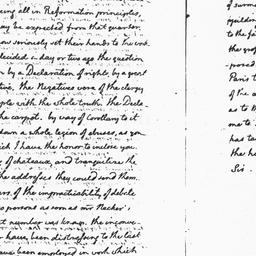 ing all in Reformation principles,
ay be expected from that quarter.
now seriously set their hands to the work
decided a day or two ago the question
n by a Declaration of rights, by a great
tive. The Negatives were of the clergy
ple with the whole truth. The Decla-
the carpet. by way of Corollary to it
down a whole legion of abuses, as you
ich I have the honor to inclose you.
of chateaux, and tranquilize the
the addresses they could send them.
ars. of the impracticability of
s persons as soon as mr Necker's
t number was known. the inconve-
have been distressing to the last
ave been employed in work which
of surm
to the fa
the gros
-posed
Paris t
of the a
as to th
me to
has ta
the ho
Sir.